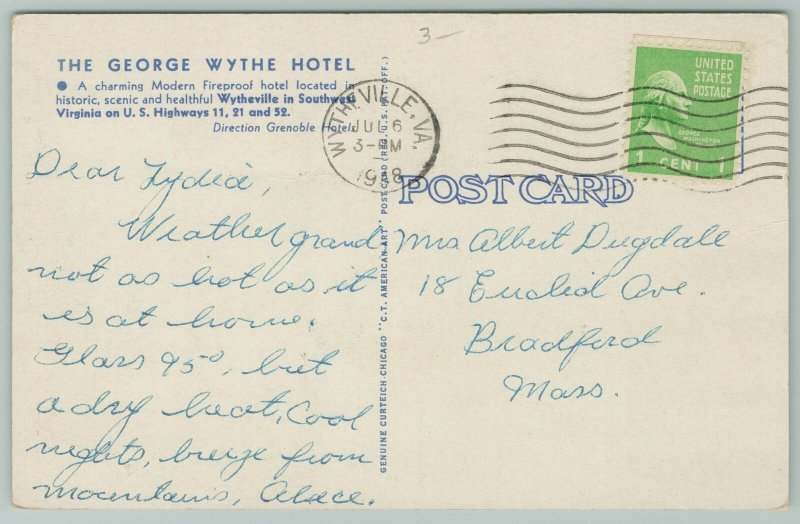 3-
THE GEORGE WYTHE HOTEL
● A charming Modern Fireproof hotel located in
historic, scenic and healthful Wytheville in Southwest
Virginia on U. S. Highways 11, 21 and 52.
Direction Grenoble Hotels
WYTHEVILLE, VA.
JUL 6
3-PM
UNITED
STATES
POSTAGE
GEORGE
WASHINGTON
1 CENT 1
POST CARD
GENUINE CURTEICH-CHICAGO "C.T. AMERICAN ART" POST CARD (REG. U.S. PAT. OFF.)
Dear Lydia,
Weather grand
not as hot as it
is at home.
Glass 95°, but
a dry heat, Cool
nights, breeze from
mountains,
Mrs. Albert Dugdale
18 Euclid Ave.
Bradford
Mass.